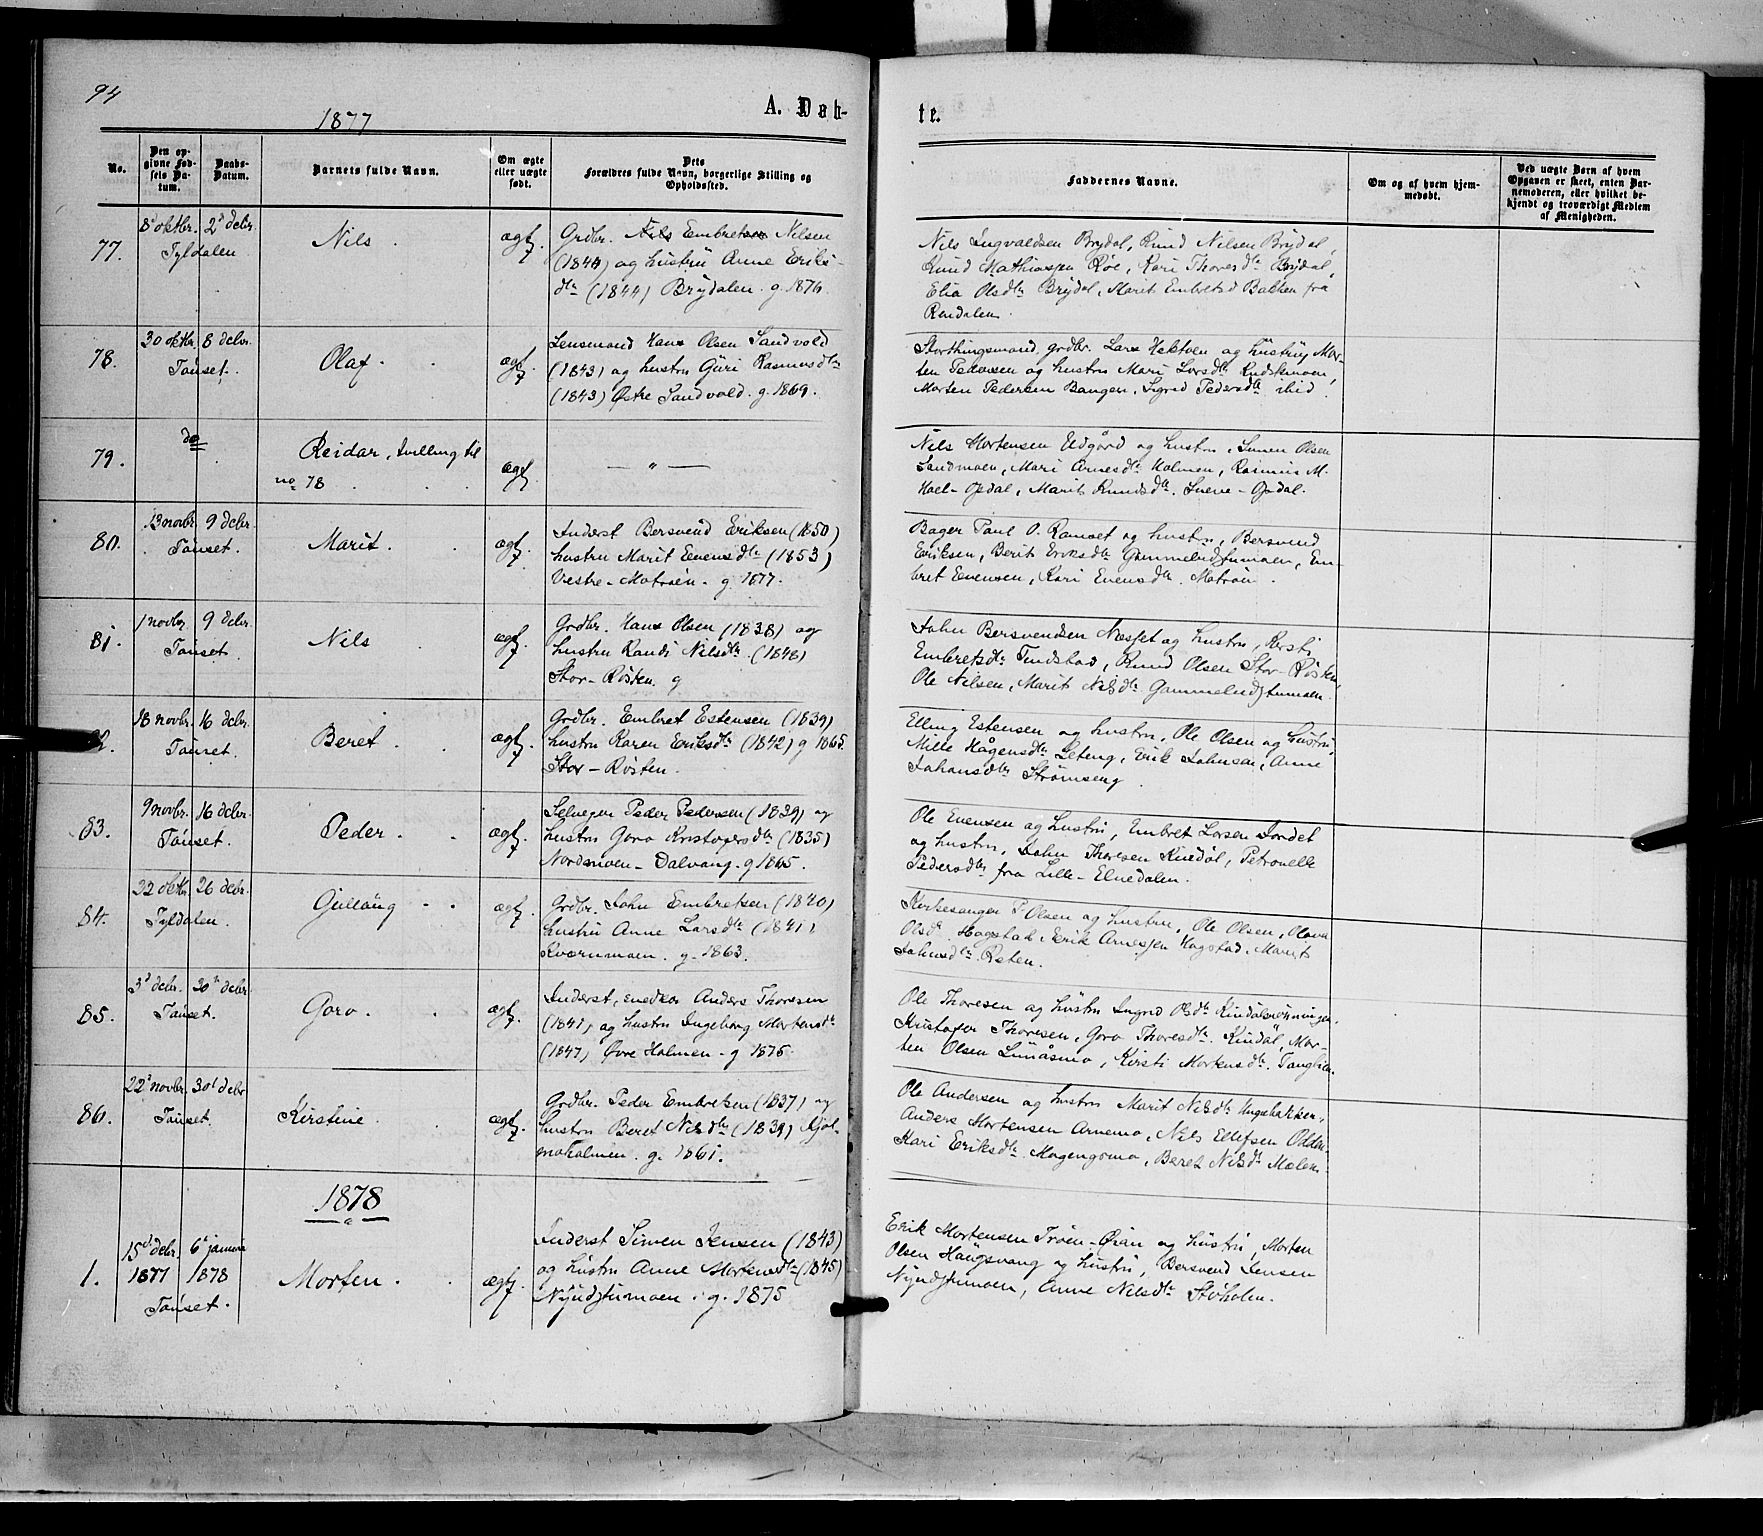 94
1877
A. Døb-
te.
No.
Den op-
givne Fød-
sels Da-
tum.
Daabs-
Datum.
Barnets fulde Navn.
Om ægte
eller uægte
født.
Dets
Forældres fulde Navn, borgerlige Stilling og
Opholdsted.
Faddernes Navne.
Om og af hvem hjem-
medøbt.
Ved uægte Børn af hvem
Opgaven er skeet, enten Bar-
nemoderen, eller hvilket be-
kjendt og troværdigt Medlem
af Menigheden.
77.
8d oktbr. 2d debr.
Tyldalen
Nils
ægf.
Grdbr. Nils Embretsen Nilsen
(1844) og hustru Anne Eriks-
dtr (1844) Brydalen. g. 1876.
Nils Ingvaldsen Brydal, Knud Nilsen Brydal,
Knud Mathiassen Røe, Kari Thoresdtr Brydal,
Elia Olsdtr Brydal, Marit Embretsd Bakken fra
Rendalen.
78.
30 oktbr. 8 debr.
Tønset.
Olaf
ægf.
Lensmand Hans Olsen Sandvold
(1843) og hustru Guri Rasmusdtr
(1843) Østre Sandvold. g. 1869.
Storthingsmand, grdbr. Lars Hektoen og hustru, Mor-
ten Pedersen og hustru Mari Larsdtr
Morten Pedersen Bangen, Sigrid Pedersdtr ibid.
79.
do
Reidar, tvilling til
no 78
ægf.
— " —
Nils Mortensen Udgård og hustru, Simen Olsen
Sandmoen, Mari Arnesdtr Holmen, Rasmus M.
Hoel-Opdal, Marit Knudsdtr. -Opdal.
80.
13 novbr. 9 debr.
Tønset.
Marit
ægf.
Inderst Bersvend Eriksen (1850)
hustru Marit Evensdtr (1853)
Vestre-Motrøen. g. 1877.
Bager Paul O. Ramset og hustru, Bersvend
Eriksen, Berit Eriksdtr Gammeludstumoen, Em-
bret Evensen, Kari Evensdtr. Motrøen.
81.
1 novbr. 9 debr.
Tønset.
Nils
ægf.
Grdbr. Hans Olsen (1838) og
hustru Randi Nilsdtr. (1848)
Stor-Røsten. g
John Bersvendsen Næsset og hustru, Kersti
Embretsdtr Tundstad, Knud Olsen Stor-Røsten,
Ole Nilsen, Marit Nilsdtr Gammeludstumoen.
82.
18 novbr. 16 debr.
Tønset.
Beret
ægf.
Grdbr. Embret Estensen (1839)
hustru Karen Eriksdtr (1842) g 1865.
Stor-Røsten.
Elling Estensen og hustru, Ole Olsen og hustru,
Mille Hågensdtr Eteng, Erik Johnsen, Anne
Johansdtr Strømseng.
83.
9 novbr. 16 debr.
Tønset.
Peder
ægf.
Selveger Peder Pedersen (1839) og
hustru Goro Kristofersdtr (1835)
Nordsmoen-Dalvang. g 1865.
Ole Evensen og hustru, Embret Larsen Jordet
og hustru, John Thoresen Kuedøl, Petronelle
Pedersdtr fra Lille-Elvedalen.
84.
22 oktbr. 26 debr.
Tyldalen.
Gullaug
ægf.
Grdbr. John Embretsen (1840)
hustru Anne Larsdtr (1841)
Kværnmoen. g. 1863.
Kirkesanger P Olsen og hustru, Ole Olsen, Olava
Olsd. Hogstad, Erik Arnessen Hogstad, Marit
Johnsdtr. Reten.
85.
3d debr. 30te debr.
Tønset.
Goro.
ægf.
Inderst, snedker Anders Thoresen
(1841) og hustru Ingeborg Mortensdtr
(1847) Øvre Holmen. g 1875.
Ole Thoresen og hustru Ingrid Olsdtr Kindølsrønningen,
Kristofer Thoresen, Goro Thoresdtr. Kindøl, Mor-
ten Olsen Limåsmo, Kirsti Mortensdtr. Tanglien.
86.
22d novbr. 30te debr
Tønset.
Kirstine
ægf.
Grdbr. Peder Embretsen (1837) og
hustru Beret Nilsdtr (1839) Kjøl-
moholmen. g. 1861.
Ole Andersen og hustru Marit Nilsdtr Ungebakken,
Anders Mortensen Arnemo, Nils Ellefsen Odden,
Kari Eriksdtr. Mogengomo, Beret Nilsdtr Mælen.
1878
1.
15d debr. 6te januar
1877 1878
Tønset.
Morten
ægf.
Inderst Simen Jensen (1843)
og hustru Anne Mortensdtr (1845)
Nyudstumoen. g. 1875
Erik Mortensen Trøen-Øian og hustru, Morten
Olsen Haugsvang og hustru, Bersvend Jensen
Nyudstumoen, Anne Nilsdtr Støholen.